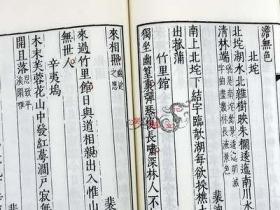 澹無色
北垞
北垞湖水北雜樹映朱闌逶迤南川水
清林端
裴
南山北垞下結宇臨欹湖每欲採樵去
出菰蒲
竹里館
獨坐幽篁裏彈琴復長嘯深林人不
來相照
裴迪
來過竹里館日與道相親出入惟山
無世人
辛夷塢
木末芙蓉花山中發紅萼澗戶寂無
開且落
裴